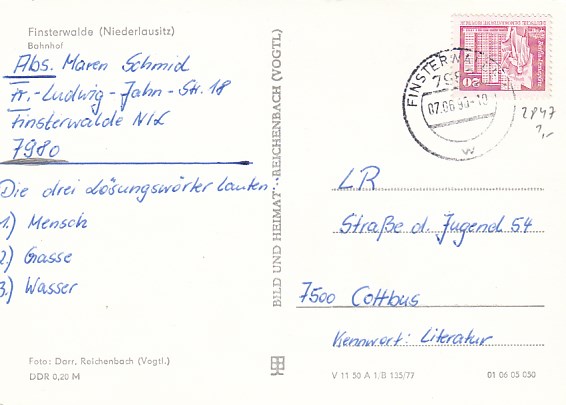 Finsterwalde (Niederlausitz)
Bahnhof
Abs. Maren Schmid
Fr.-Ludwig-Jahn-Str. 18
Finsterwalde N/L
7980
Die drei Lösungswörter lauten:
1.) Mensch
2.) Gasse
3.) Wasser
Foto: Darr, Reichenbach (Vogtl.)
DDR 0,20 M
BILD UND HEIMAT REICHENBACH (VOGTL)
FINSTERWAL
07.06.90-10
w
20
2847
1,-
LR
Straße d. Jugend 54
7500 Cottbus
Kennwort: Literatur
V 11 50 A 1/B 135/77
01 06 05 050